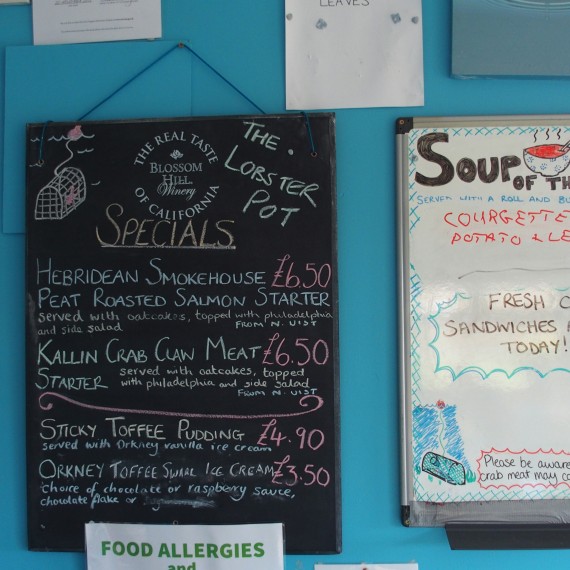 LEAVES
THE REAL TASTE
BLOSSOM
HILL
Winery
OF CALIFORNIA
THE
LOBSTER
POT
SPECIALS
HEBRIDEAN SMOKEHOUSE £6.50
PEAT ROASTED SALMON STARTER
served with oatcakes, topped with philadelphia
and side salad FROM N. UIST
KALLIN CRAB CLAW MEAT £6.50
STARTER served with oatcakes, topped
with philadelphia and side salad
FROM N. UIST
STICKY TOFFEE PUDDING £4.90
served with Orkney vanilla ice cream
ORKNEY TOFFEE SWIRL ICE CREAM £3.50
choice of chocolate or raspberry sauce,
chocolate flake or
FOOD ALLERGIES
and
SOUP
OF TH
SERVED WITH A ROLL AND BU
COURGETTE
POTATO & LE
FRESH C
SANDWICHES
TODAY!
Please be aware
crab meat may co